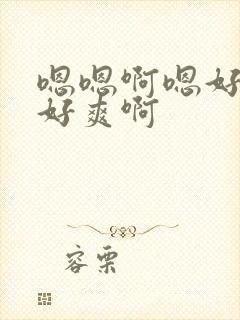 嗯嗯啊嗯好
好爽啊
容栗